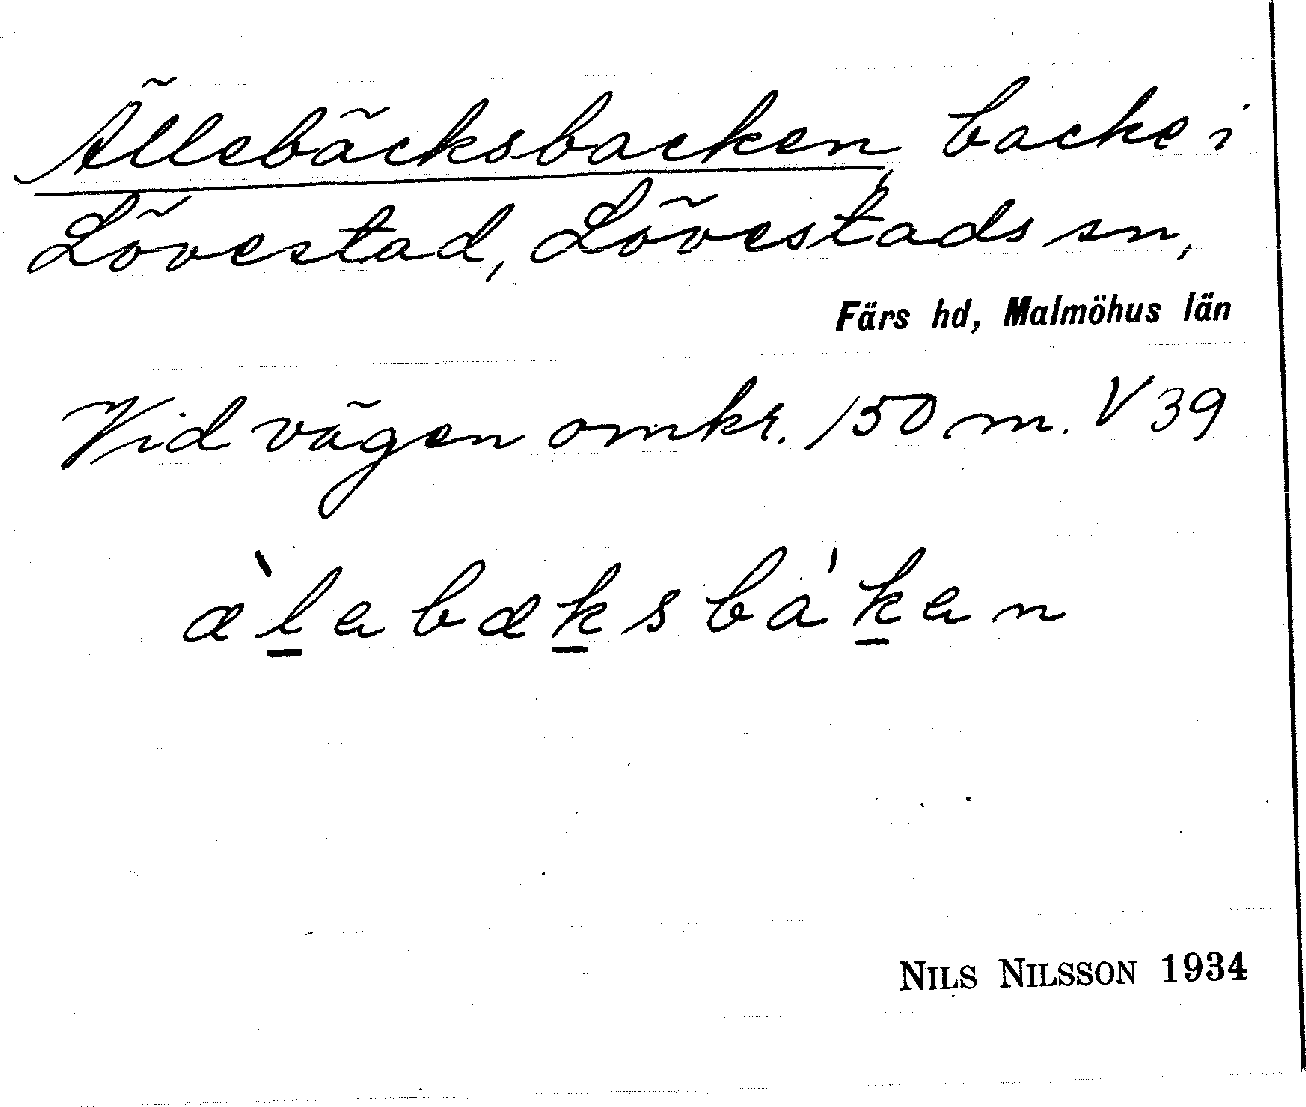 Ällebäcksbacken, backe i
Lövestad, Lövestads sn,
Färs hd, Malmöhus län
Vid vägen omkr. 150 m. V 39
æ̀l̲abæk̲sbák̲an
NILS NILSSON 1934